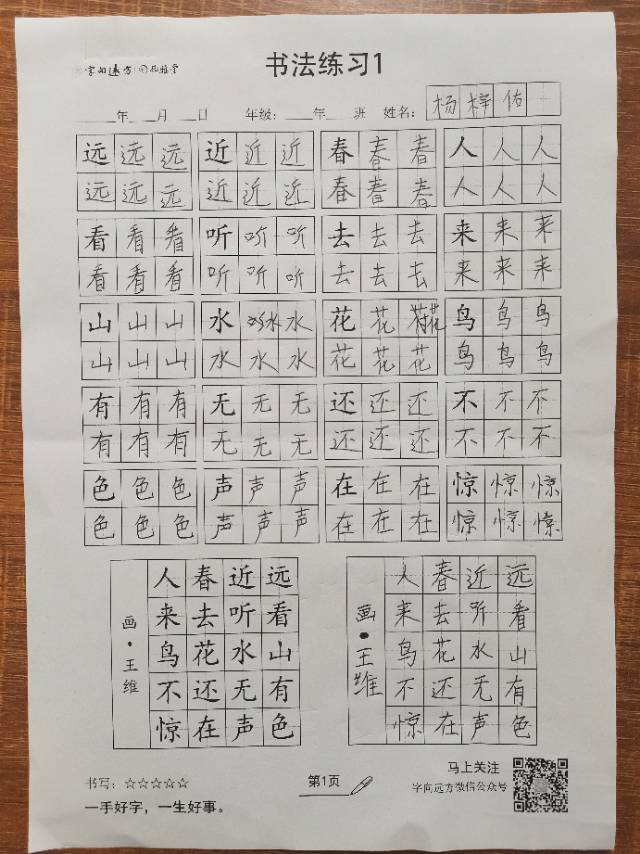 字向远方
书法练习1
年 月 日 年级: 年 班 姓名: 杨梓佑
远 远 远 近 近 近 春 春 春 人 人 人
远 远 远 近 近 近 春 春 春 人 人 人
看 看 看 听 听 听 去 去 去 来 来 来
看 看 看 听 听 听 去 去 去 来 来 来
山 山 山 水 水 水 花 花 花 鸟 鸟 鸟
山 山 山 水 水 水 花 花 花 鸟 鸟 鸟
有 有 有 无 无 无 还 还 还 不 不 不
有 有 有 无 无 无 还 还 还 不 不 不
色 色 色 声 声 声 在 在 在 惊 惊 惊
色 色 色 声 声 声 在 在 在 惊 惊 惊
远看山有色
近听水无声
春去花还在
人来鸟不惊
画·王维
远看山有色
近听水无声
春去花还在
人来鸟不惊
画·王维
书写: ☆☆☆☆☆
一手好字，一生好事。
第1页
马上关注
字向远方微信公众号